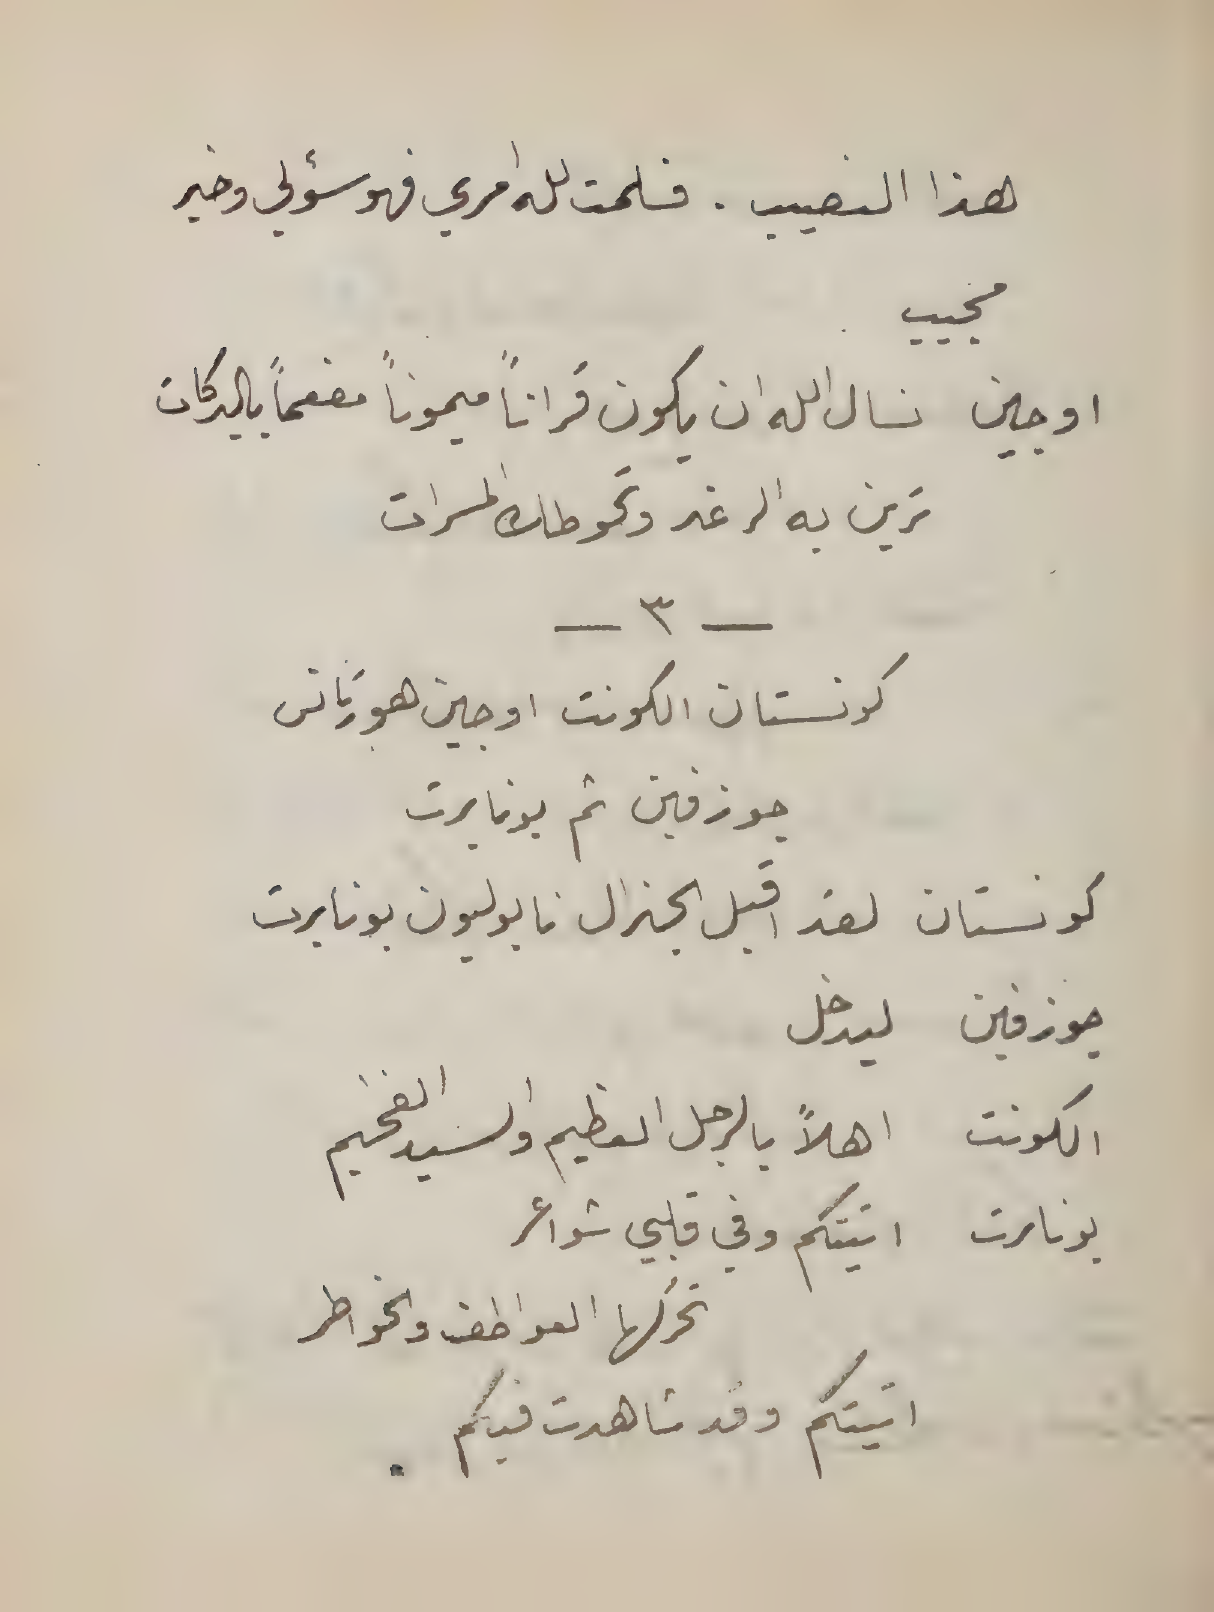 هذا النصيب . فسلمت لله امري فهو سؤلي وخير
مجيب
اوجين نسال الله ان يكون قراناً ميموناً مفعماً بالبركات
ترين به الرغد وتحوطك المسرات
— ٣ —
كونستان الكونت اوجين هورتانس
جوزفين ثم بونابرت
كونستان لقد اقبل الجنرال نابوليون بونابرت
جوزفين ليدخل
الكونت اهلاً بالرجل العظيم والسيد الفخيم
بونابرت اتيتكم وفي قلبي شواعر
تحركها العواطف والخواطر
اتيتكم وقد شاهدت فيكم